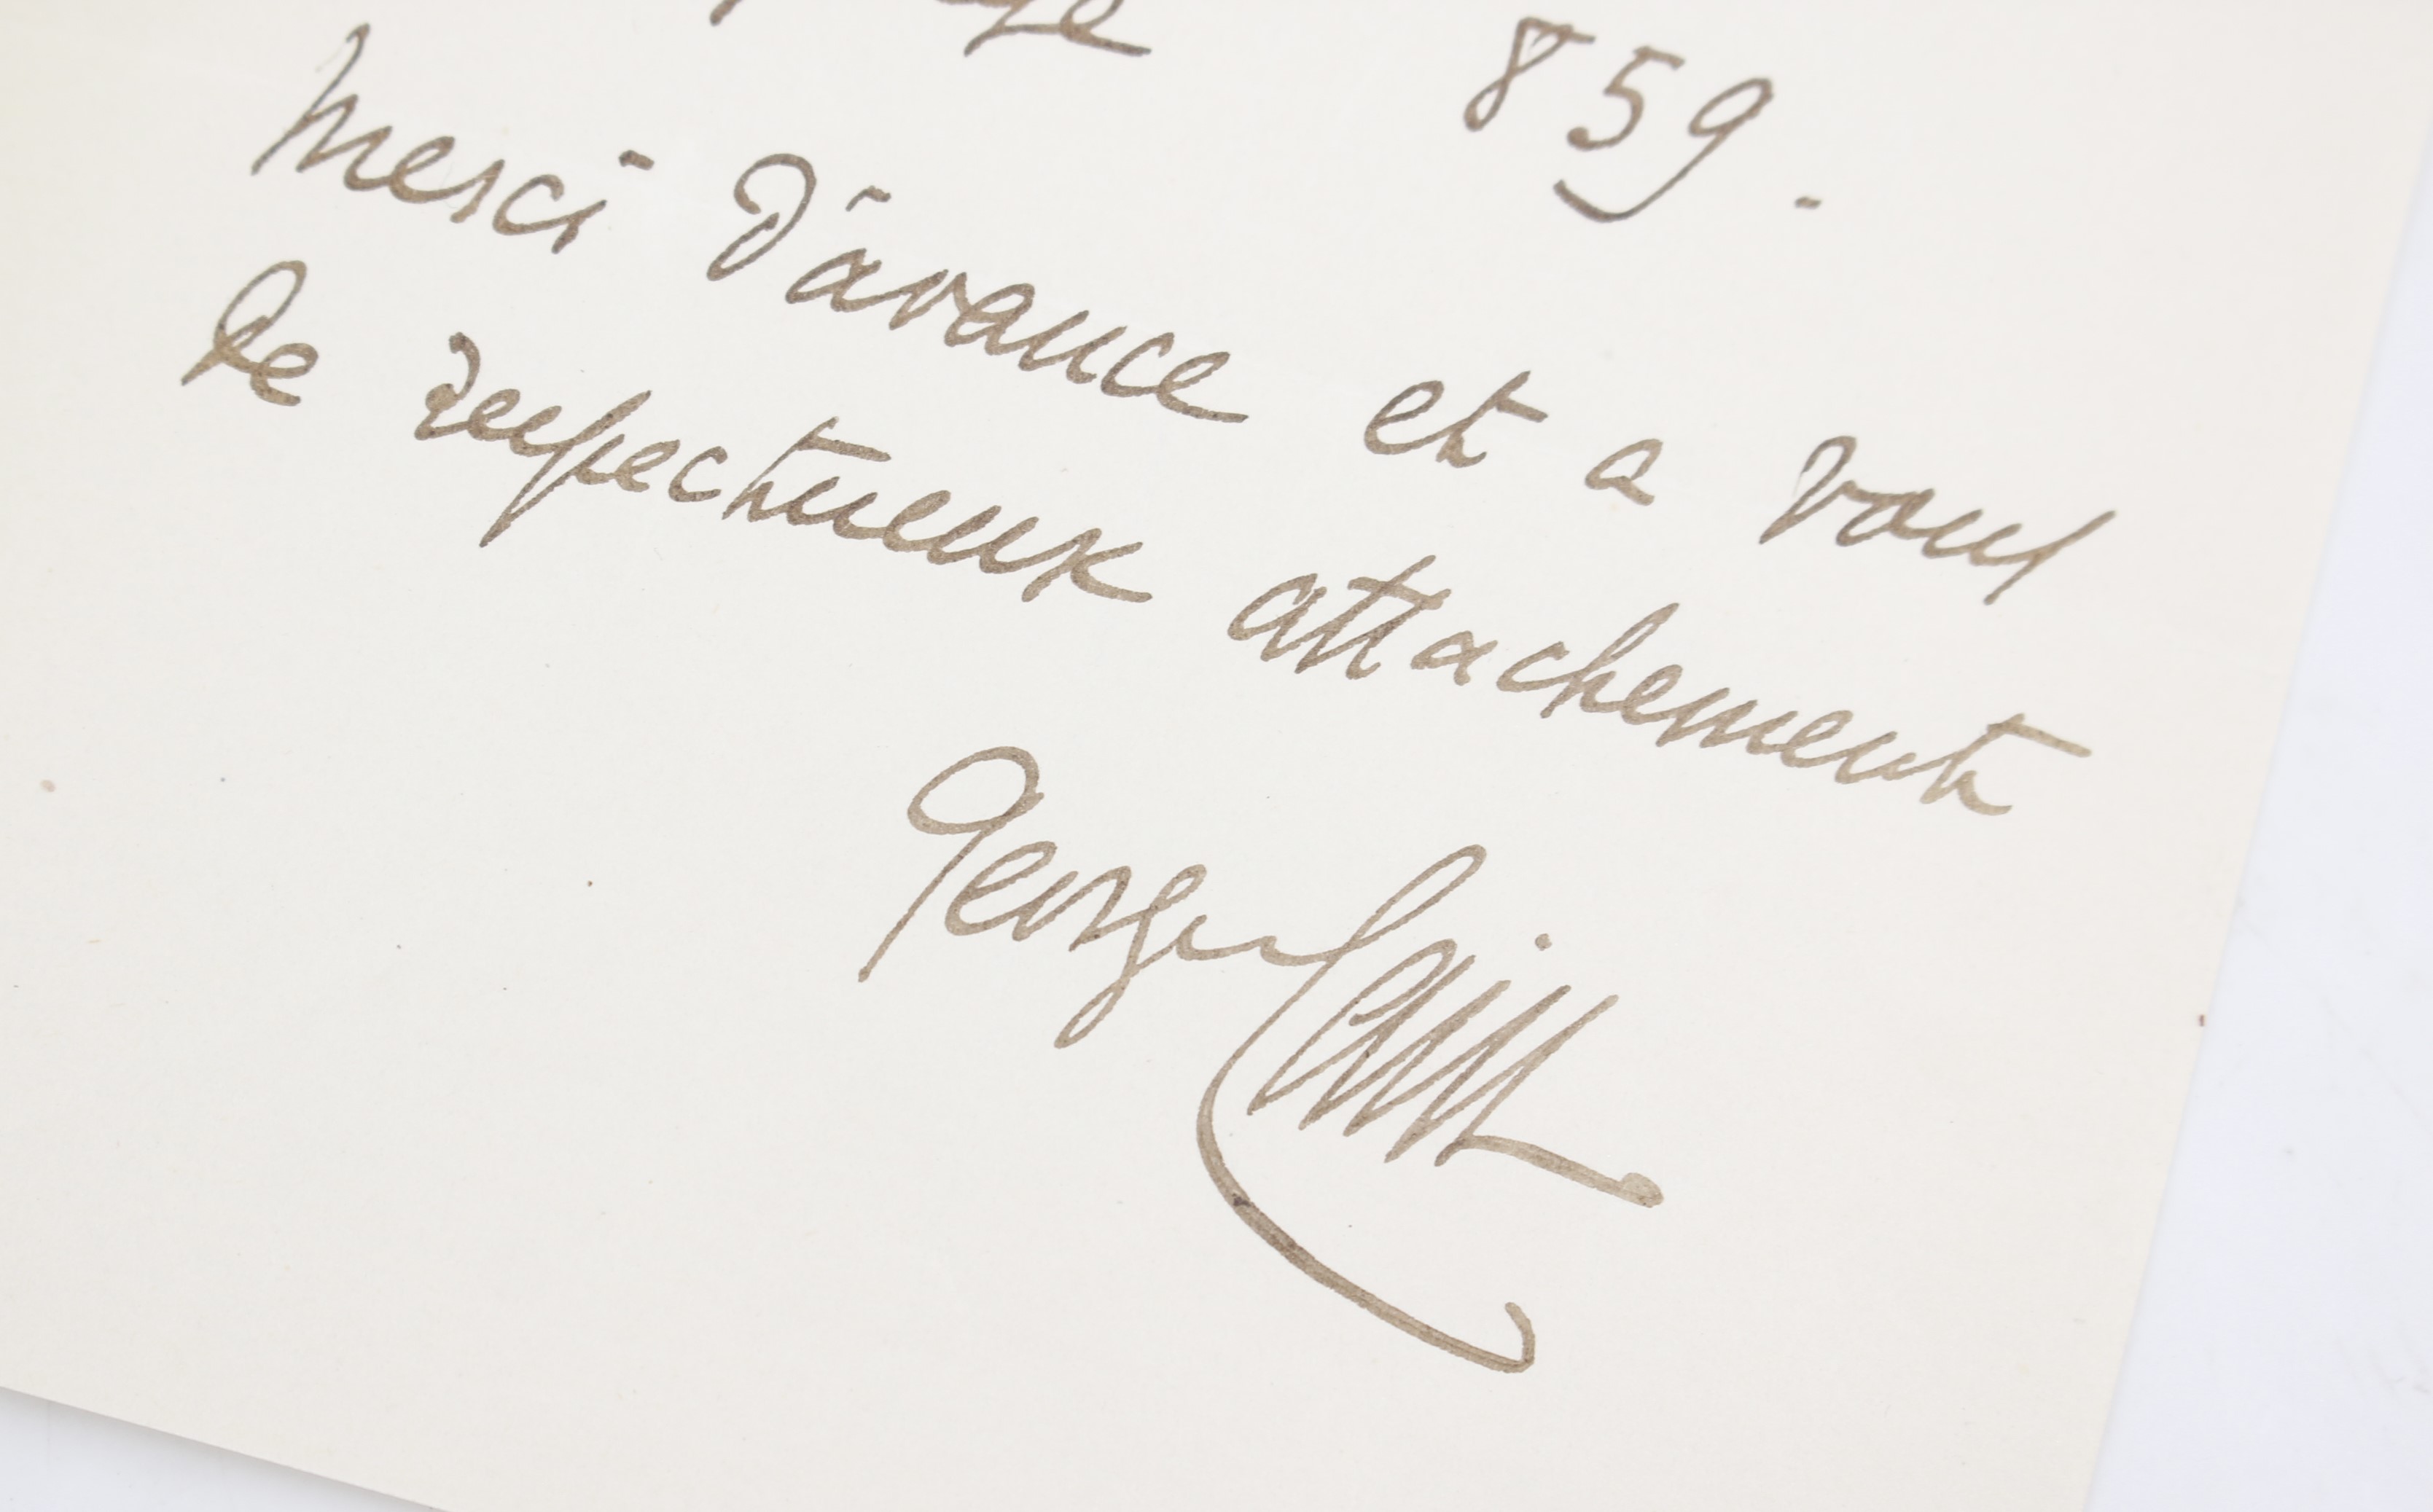 859.
Merci d'avance et a vous
de respectueux attachement
Georges Cain